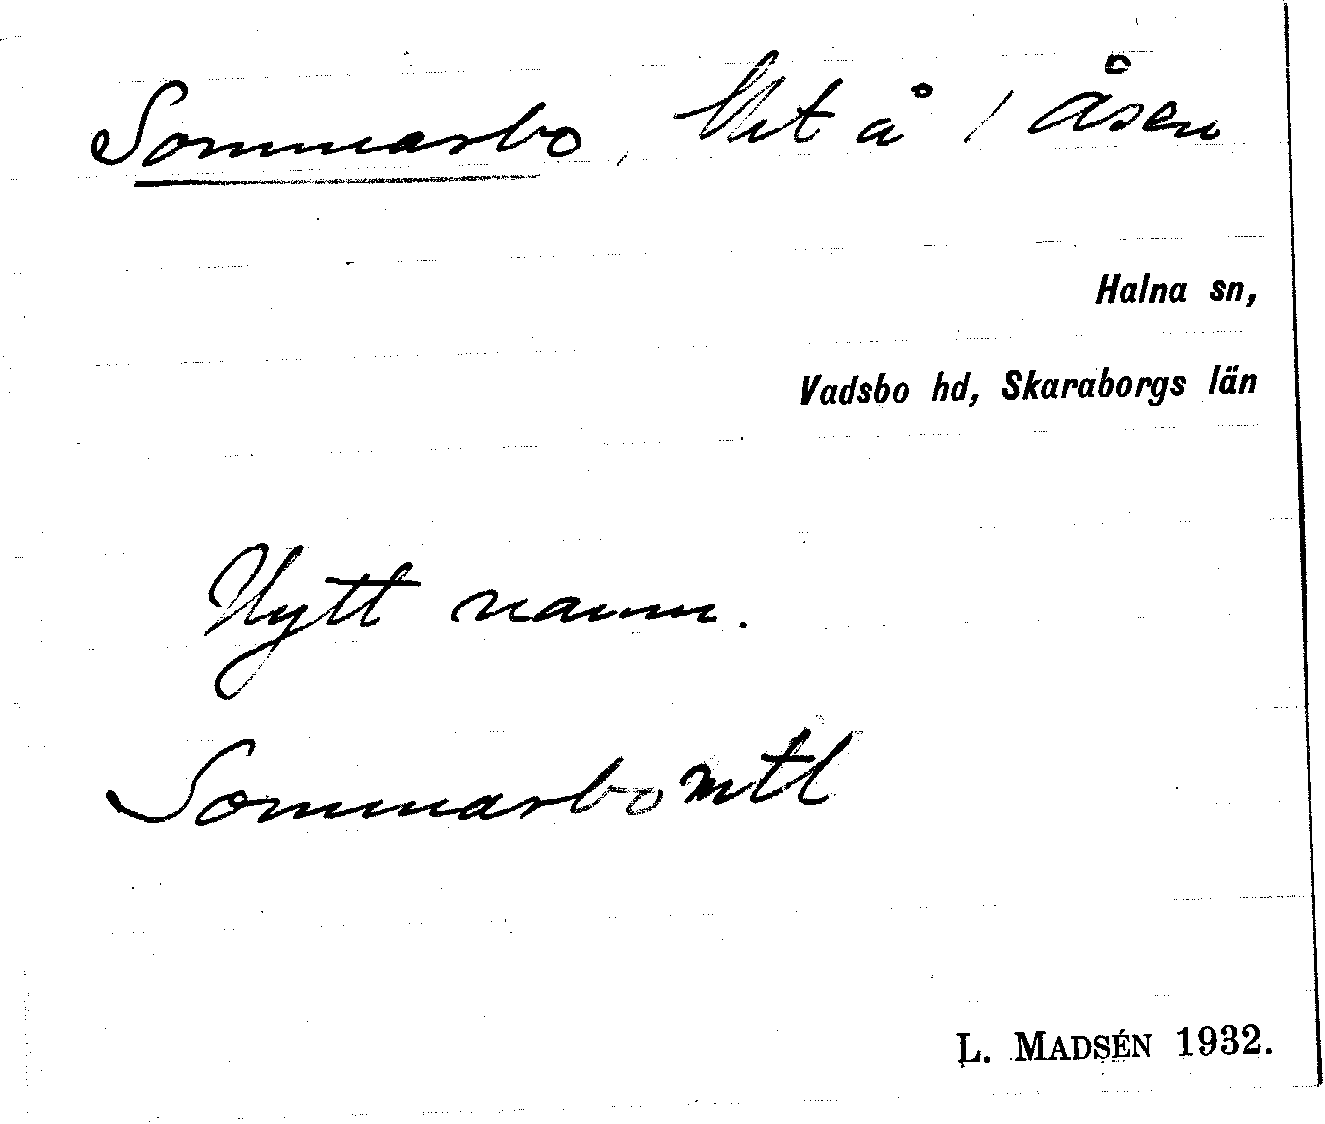 Sommarbo, lht å 1 Åsen
Halna sn,
Vadsbo hd, Skaraborgs län
Nytt namn.
Sommarbo mtl
L. MADSÉN 1932.